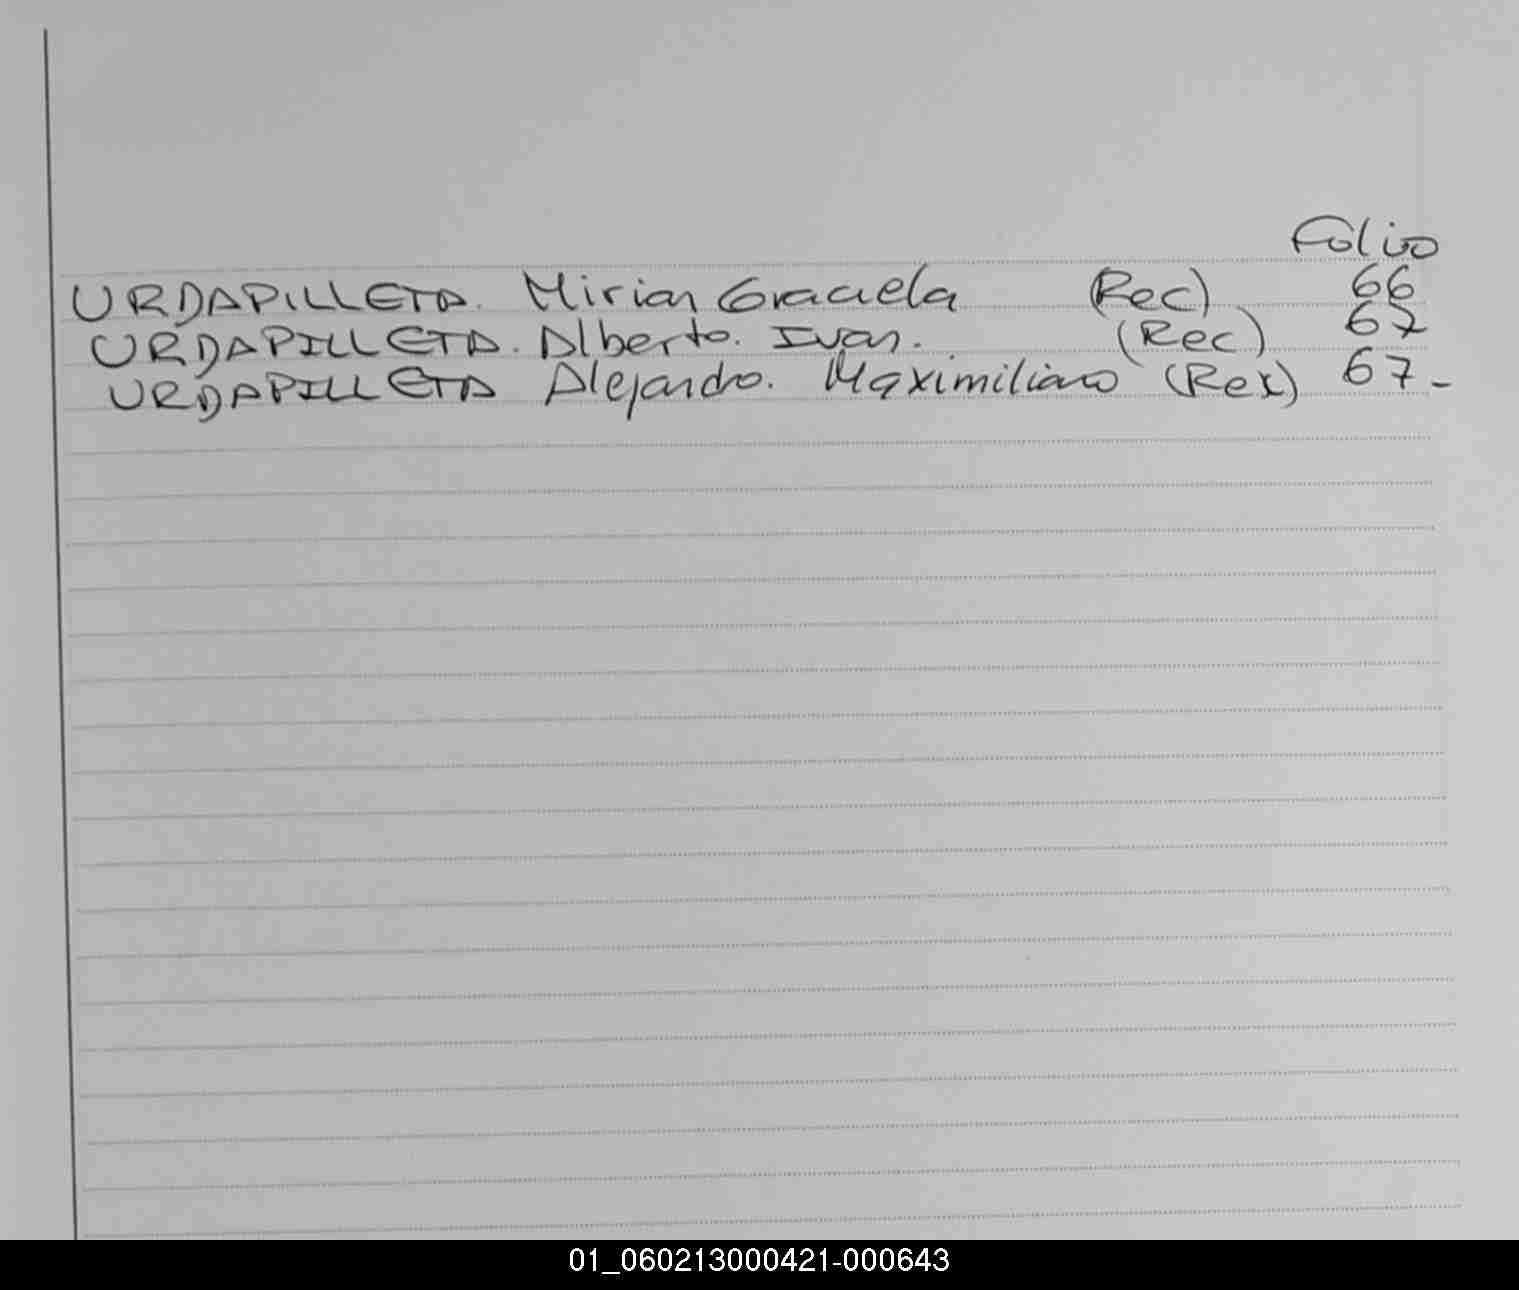 Folio
URDAPILLETA. Mirian Graciela (Rec) 66
URDAPILLETA. Alberto. Ivan. (Rec) 67
URDAPILLETA Alejandro. Maximiliano (Rec) 67-
01_060213000421-000643